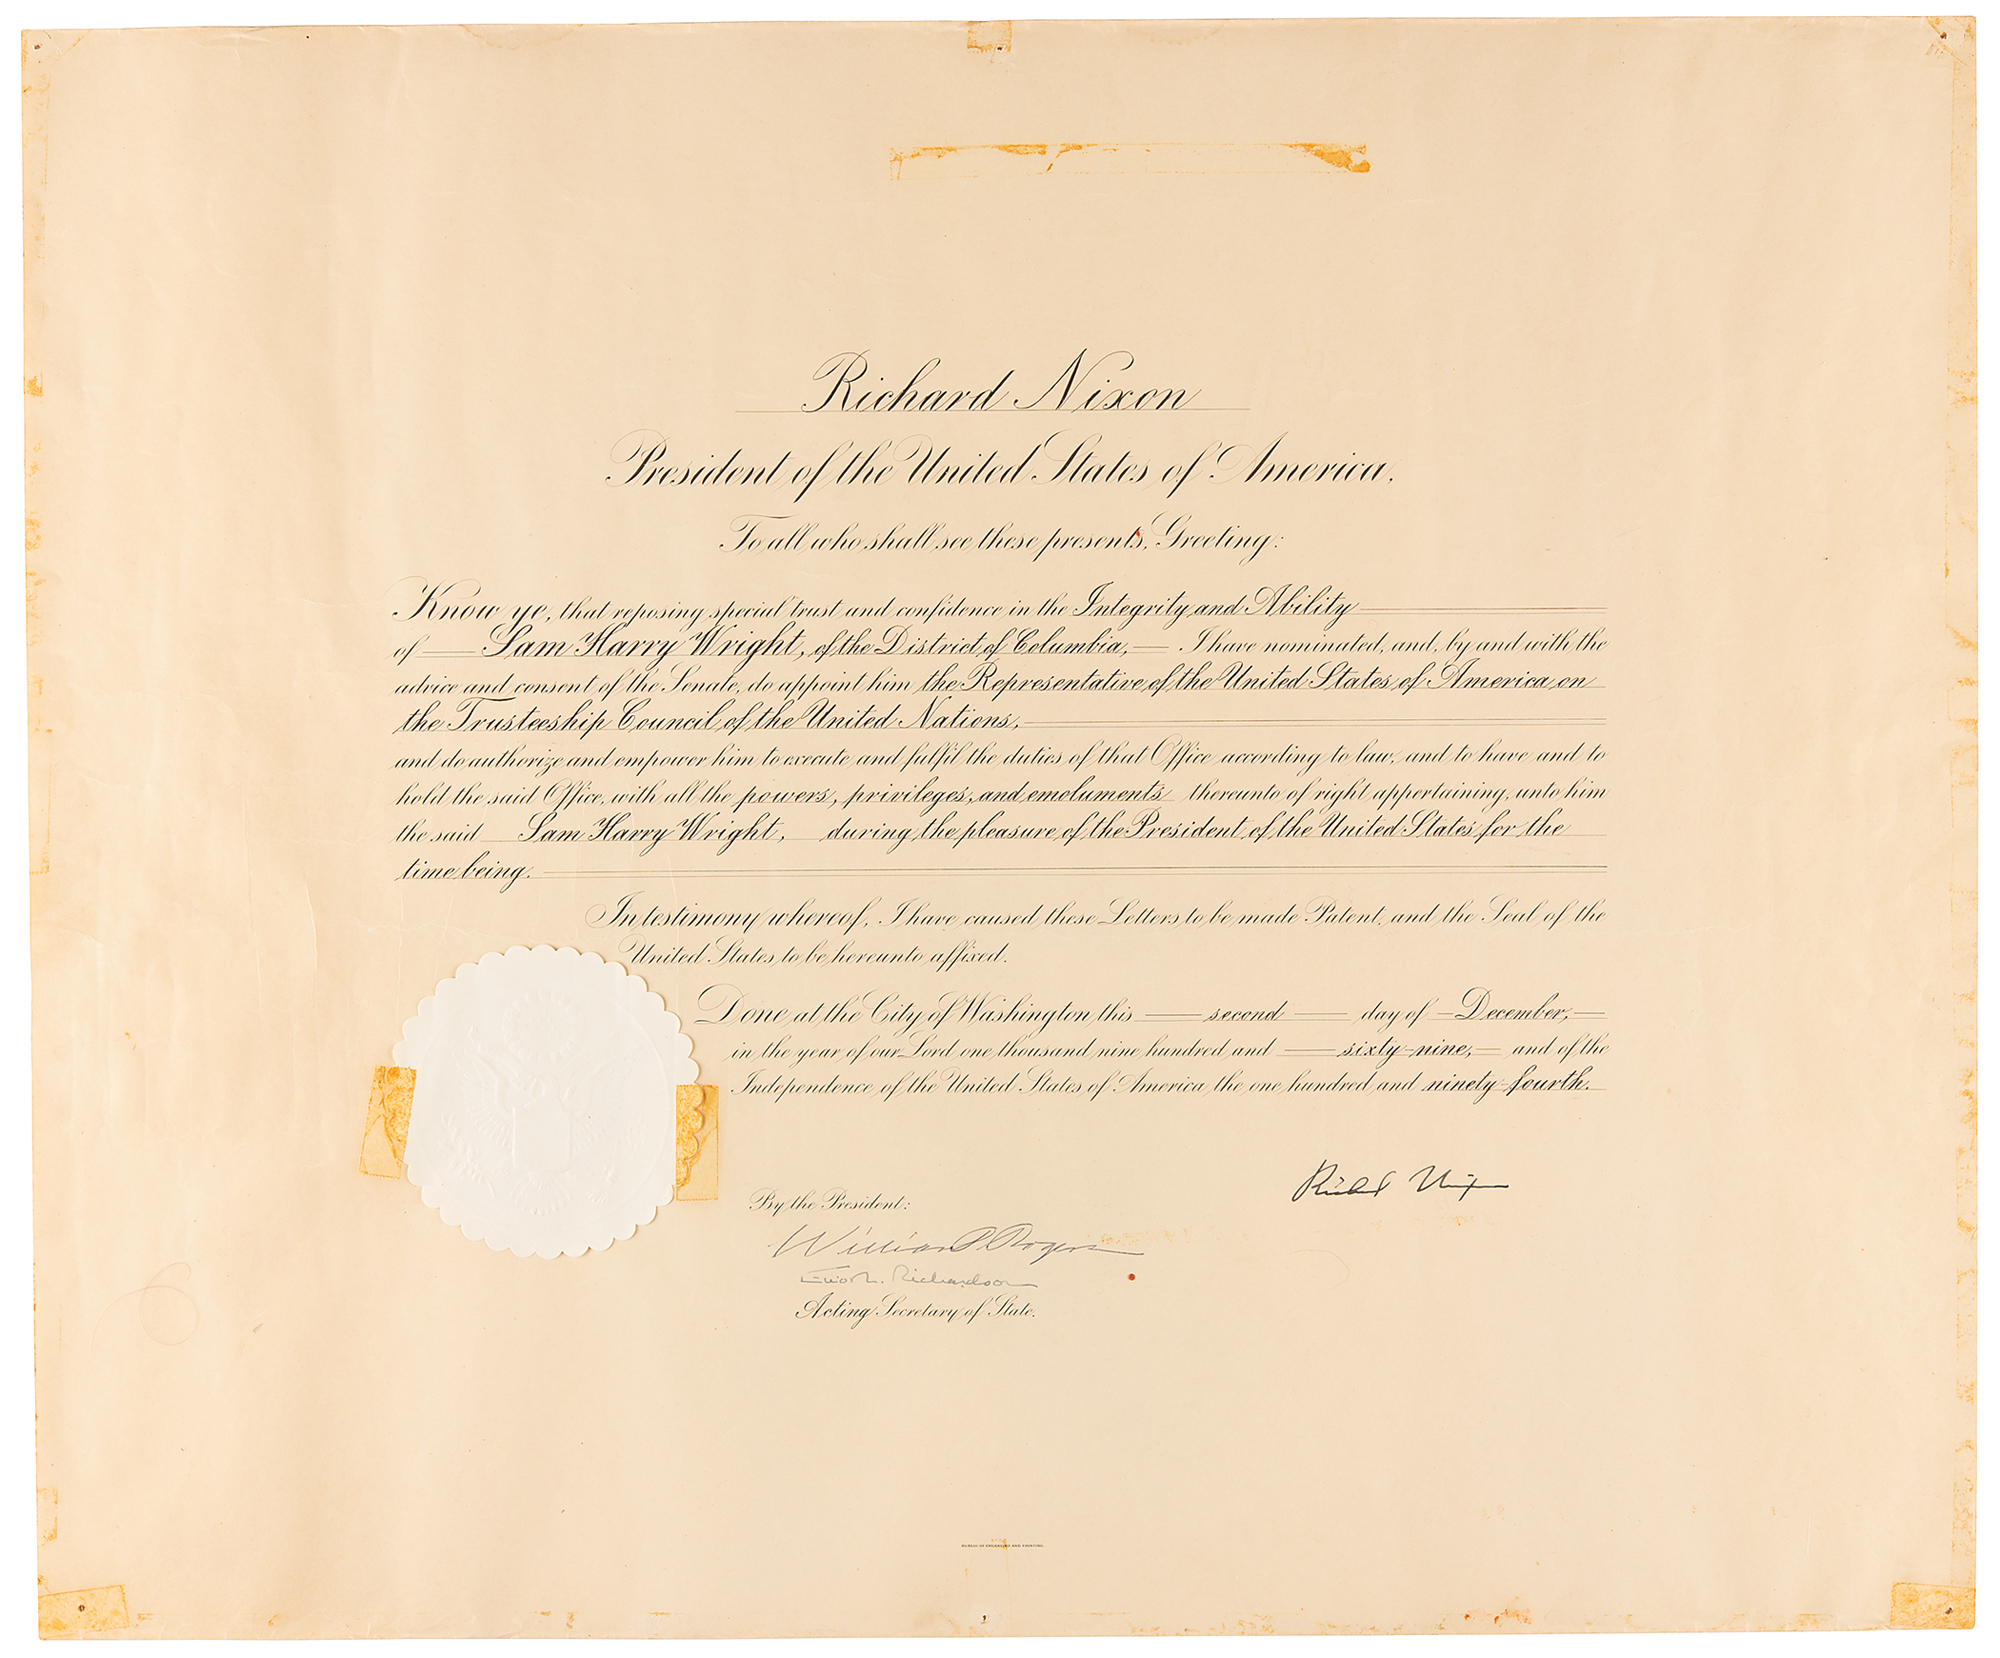 Richard Nixon
President of the United States of America.
To all who shall see these presents, Greeting:
Know ye, that reposing special trust and confidence in the Integrity and Ability
of Sam Harry Wright, of the District of Columbia, I have nominated, and, by and with the
advice and consent of the Senate, do appoint him the Representative of the United States of America on
the Trusteeship Council of the United Nations,
and do authorize and empower him to execute and fulfil the duties of that Office according to law, and to have and to
hold the said Office, with all the powers, privileges, and emoluments thereunto of right appertaining, unto him
the said Sam Harry Wright, during the pleasure of the President of the United States for the
time being.
In testimony whereof, I have caused these Letters to be made Patent, and the Seal of the
United States to be hereunto affixed.
Done at the City of Washington this second day of December,
in the year of our Lord one thousand nine hundred and sixty-nine, and of the
Independence of the United States of America the one hundred and ninety-fourth.
Richard Nixon
By the President:
William P Rogers
Elliot L. Richardson
Acting Secretary of State.
BUREAU OF ENGRAVING AND PRINTING